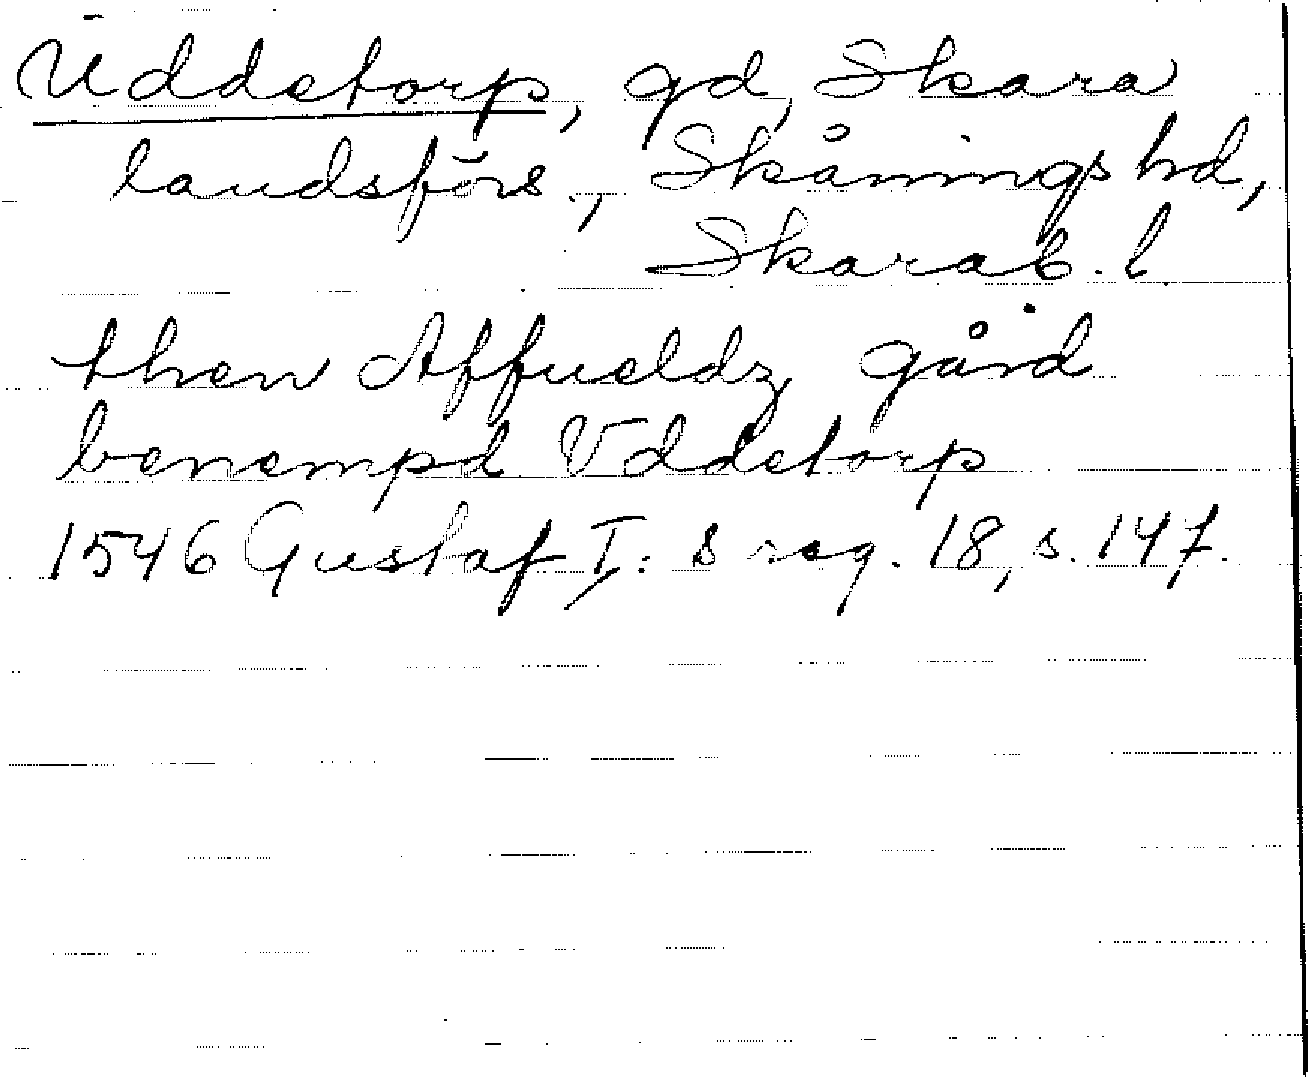 Uddetorp, gd, Skara
landsförs., Skånings hd,
Skarab. l.
then Affueldz gård
benempd Vddetorp
1546 Gustaf I:s reg. 18, s. 147.